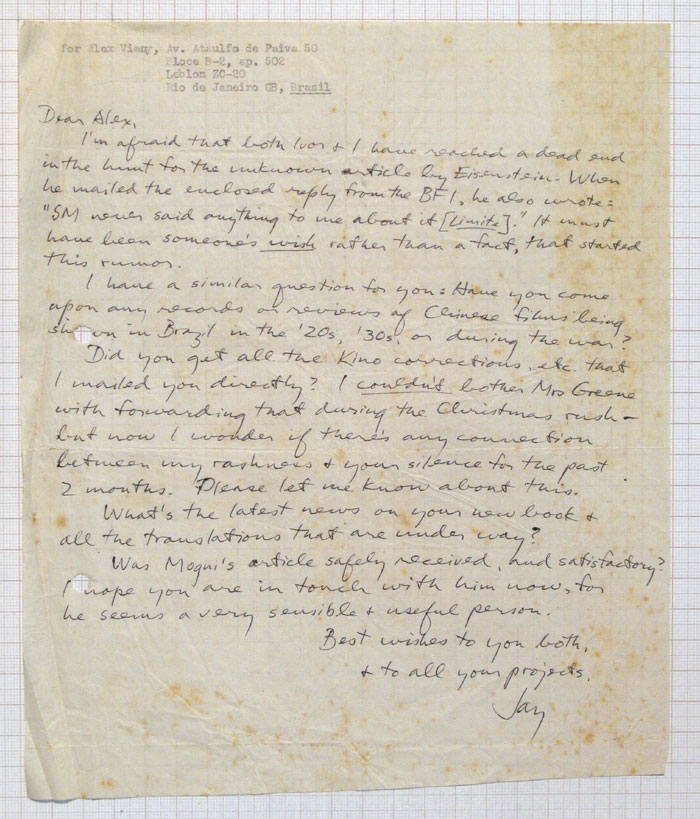 for Alex Viany, Av. Ataulfo de Paiva 50
Bloco B-2, ap. 502
Leblon ZC-20
Rio de Janeiro GB, Brasil
Dear Alex,
I'm afraid that both Ivor & I have reached a dead end
in the hunt for the unknown article by Eisenstein. When
he mailed the enclosed reply from the BFI, he also wrote:
"SM never said anything to me about it [Limite]." It must
have been someone's wish rather than a fact, that started
this rumor.
I have a similar question for you: Have you come
upon any records or reviews of Chinese films being
shown in Brazil in the '20s, '30s, or during the war?
Did you get all the Kino corrections, etc. that
I mailed you directly? I couldn't bother Mrs Greene
with forwarding that during the Christmas rush –
but now I wonder if there's any connection
between my rashness & your silence for the past
2 months. Please let me know about this.
What's the latest news on your new book &
all the translations that are under way?
Was Mogni's article safely received, and satisfactory?
I hope you are in touch with him now, for
he seems a very sensible & useful person.
Best wishes to you both,
& to all your projects,
Jay